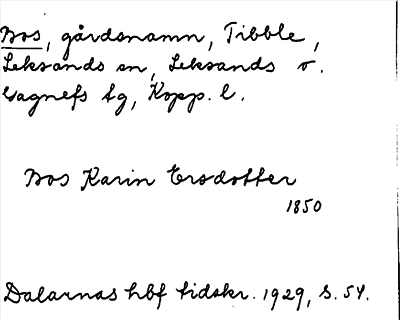 Bos, gårdsnamn, Tibble,
Leksands sn, Leksands o.
Gagnefs tg, Kopp. l.
Bos Karin Ersdotter
1850
Dalarnas hbf tidskr. 1929, s. 54.